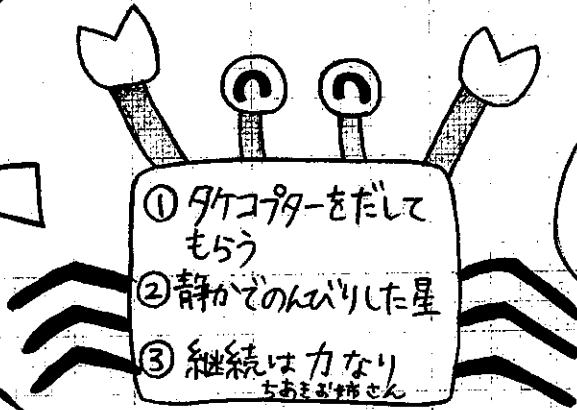 ① タケコプターをだして
もらう
② 静かでのんびりした星
③ 継続は力なり
ちあきお姉さん